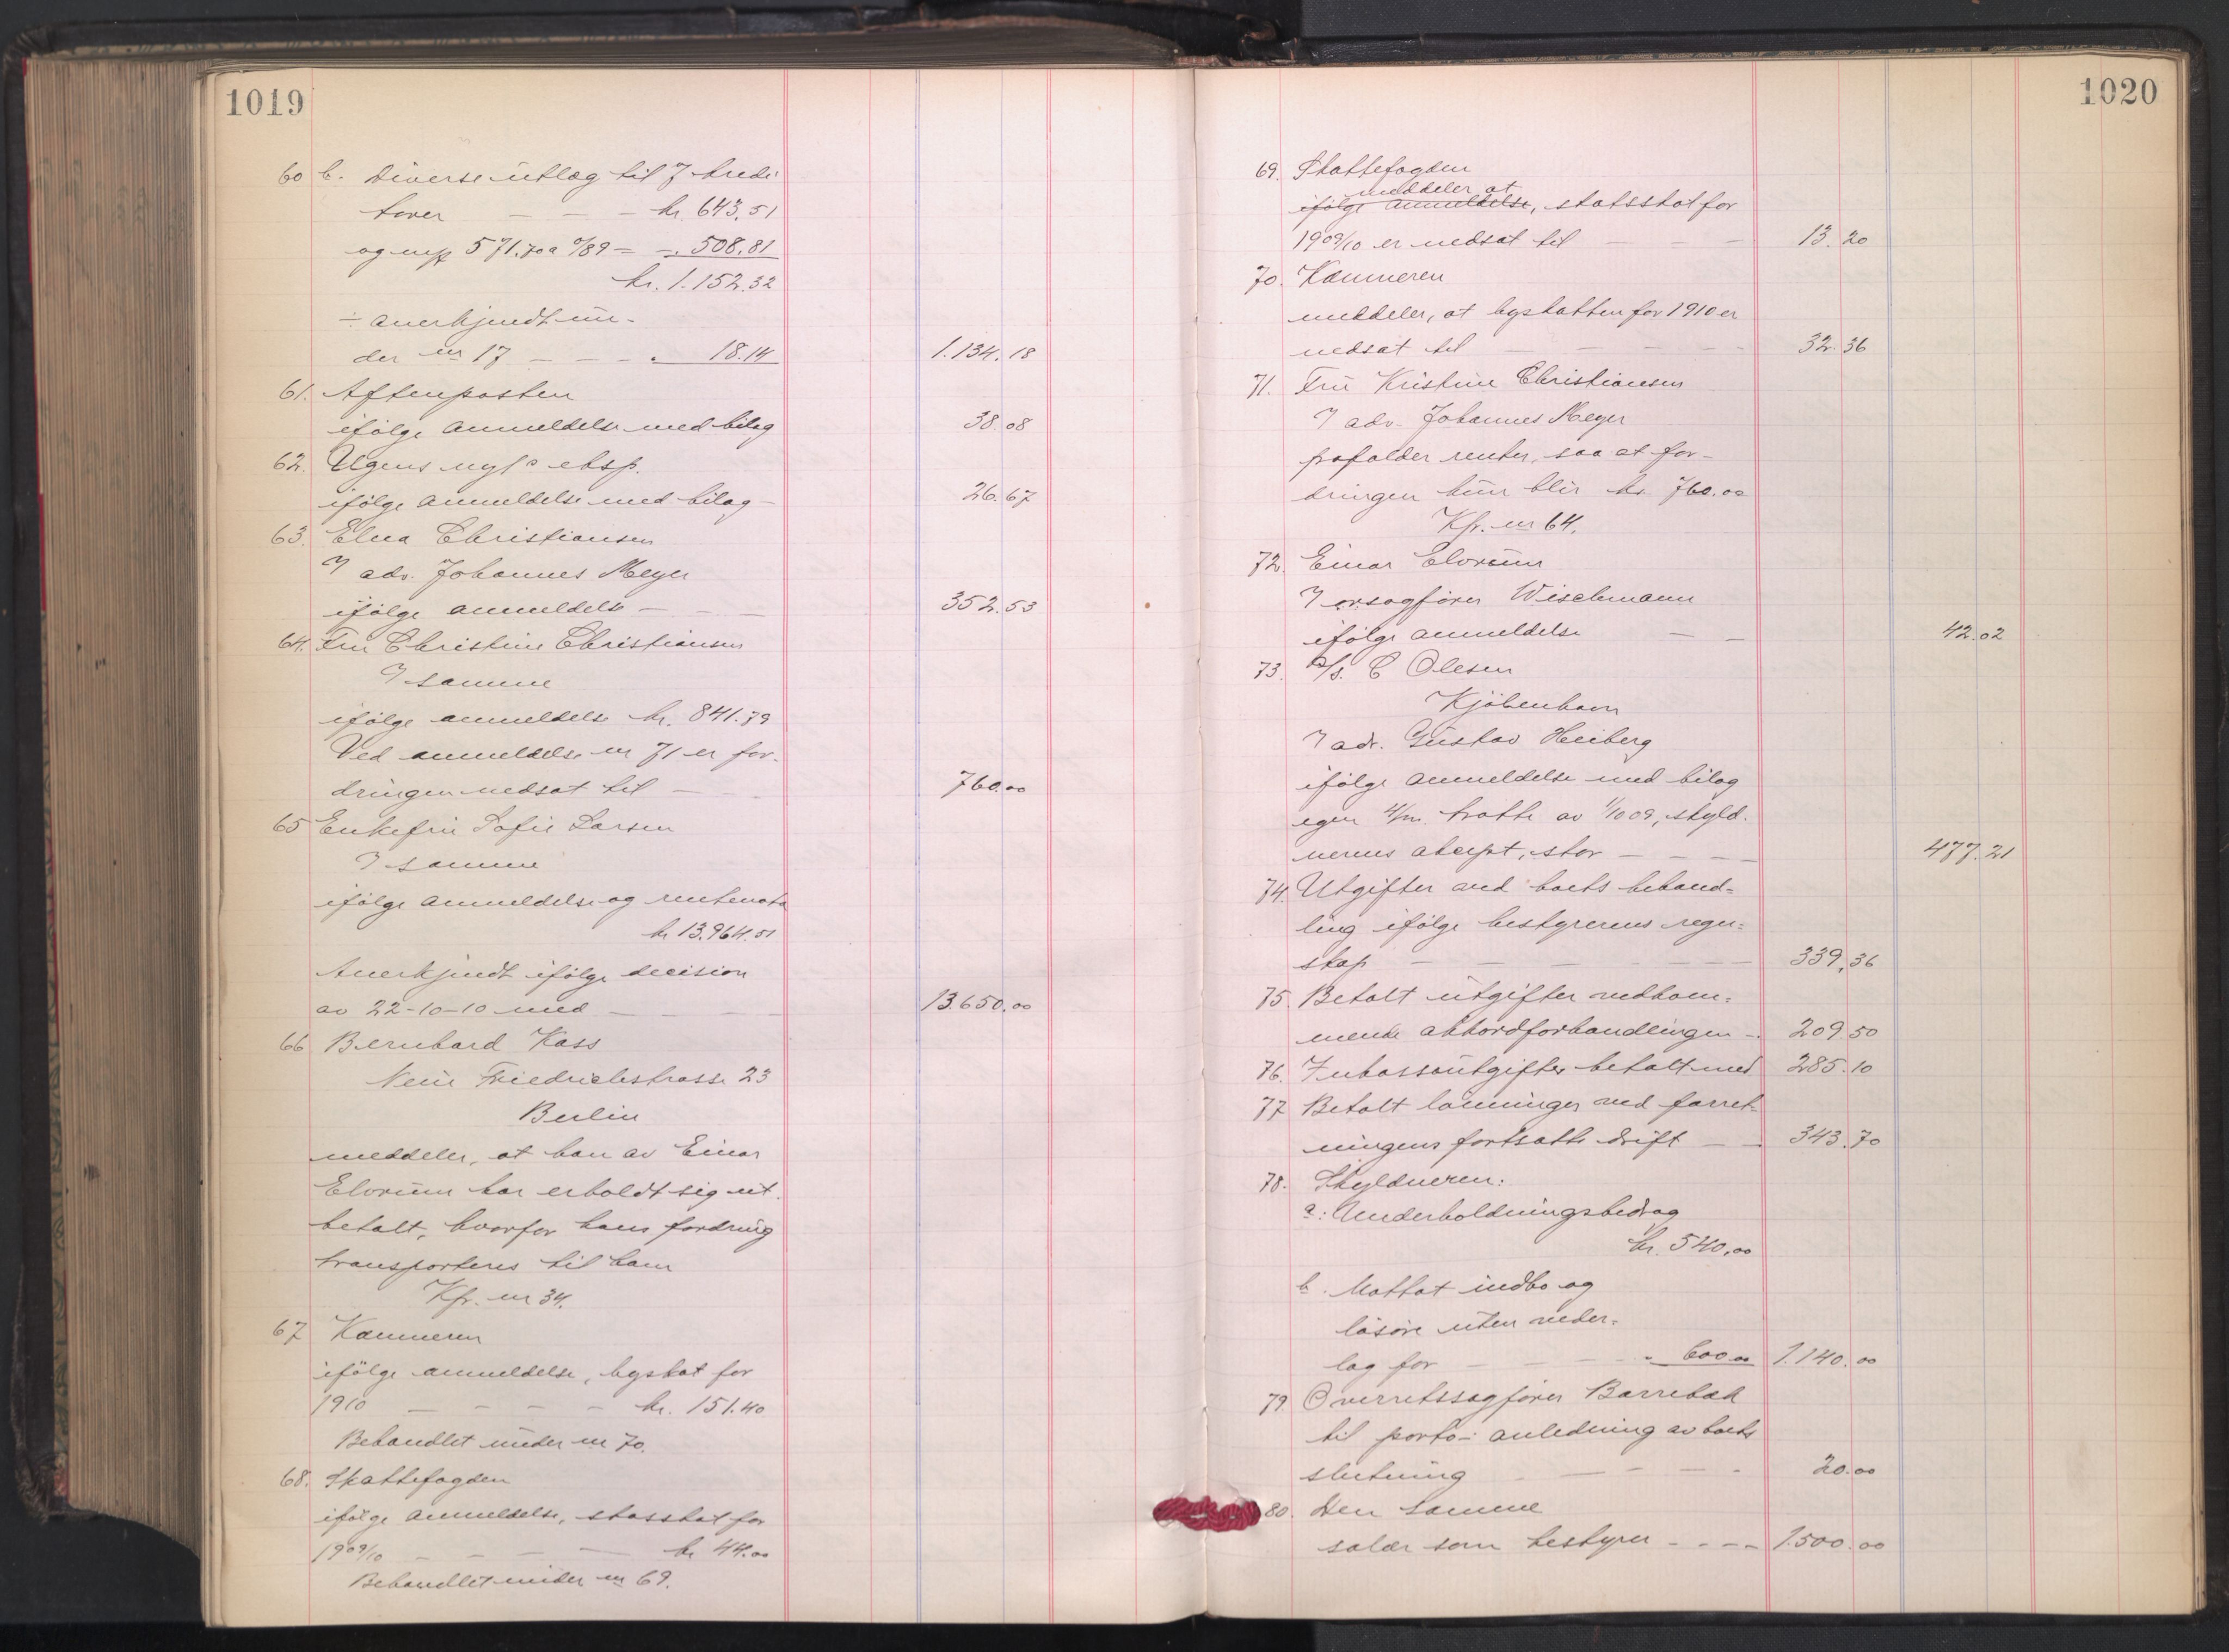 1019
60 b. Diverse utlæg til 7 kredi-
torer — — — kr. 643.51
og 571.70 a 0/89 = -. 508.81
kr. 1.152.32
÷ anerkjendt un-
der nr 17 — — — . 18.14 1.134.18
61. Aftenposten
ifølge anmeldelse med bilag 38.08
62. Ugens nyts eksp.
ifølge anmeldelse med bilag — 26.67
63. Elna Christiansen
v/ adv. Johannes Meyer
ifølge anmeldelse — — — 352.53
64. Fru Christine Christiansen
v/ samme
ifølge anmeldelse kr. 841.79
Ved anmeldelse nr 71 er for-
dringen nedsat til — — 760.00
65 Enkefru Sofie Larsen
v/ samme
ifølge anmeldelse og rentenota
kr 13.964.51
Anerkjendt ifølge decision
av 22-10-10 med — — — — 13.650.00
66 Bernhard Kass
Neue Friedrichstrasse 23
Berlin
meddeler, at han av Einar
Elvrum har erholdt sig ut-
betalt, hvorfor hans fordring
transporteres til ham
Kfr. nr 34.
67 Kæmneren
ifølge anmeldelse, byskat for
1910 — — — — kr. 151.40
Behandlet under nr 70.
68. Skattefogden
ifølge anmeldelse, statsskat for
1909/10 — — — — kr 44.00
Behandlet under nr 69.
1020
69. Skattefogden
meddeler at
ifølge anmeldelse, statsskat for
1909/10 er nedsat til — — — 13.20
70. Kæmneren
meddeler, at byskatten for 1910 er
nedsat til — — — — 32.36
71. Fru Kristine Christiansen
v/ adv. Johannes Meyer
frafalder renter, saa at for-
dringen kun blir kr 760.00
Kfr. nr 64.
72. Einar Elvrum
v/ orsagfører Wischmann
ifølge anmeldelse — — 42.02
73. A/S. C Olesen
Kjöbenhavn
v/ adv. Gustav Heiberg
ifølge anmeldelse med bilag
egen 4/m. tratte av 1/10 09, skyld-
nerens aksept, stor — — — — 477.21
74. Utgifter ved boets behand-
ling ifølge bestyrerens regn-
skap — — — — — — 339.36
75. Betalt utgifter vedkom-
mende akkordforhandlingen —. 209.50
76. Inkassoutgifter betalt med 285.10
77 Betalt lønninger ved forret-
ningens fortsatte drift — — 343.70
78. Skyldneren:
a: Underholdningsbidrag
kr. 540.00
b. Mottat indbo og
løsøre uten veder-
lag for — — — — - 600.00 1.140.00
79. Overretssagfører Barrebæk
til porto i anledning av boets
slutning — — — — - 20.00
80. Den samme
salær som bestyrer - - - - 1.500.00